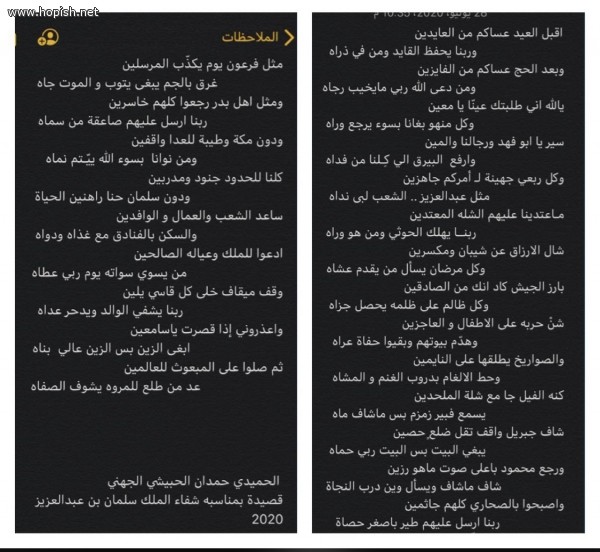 www.hopish.net
28 يونيو، 2020، 10:35 م
اقبل العيد عساكم من العايدين
وربنا يحفظ القايد ومن في ذراه
وبعد الحج عساكم من الفايزين
ومن دعى الله ربي مايخيب رجاه
يالله اني طلبتك عينًا يا معين
وكل منهو بغانا بسوء يرجع وراه
سير يا ابو فهد ورجالنا والمين
وارفع البيرق الي كـلنا من فداه
وكل ربعي جهينة لـ أمركم جاهزين
مثل عبدالعزيز .. الشعب لبى نداه
مـاعتدينا عليهم الشله المعتدين
ربنــا يهلك الحوثي ومن هو وراه
شال الارزاق عن شيبان ومكسرين
وكل مرضان يسأل من يقدم عشاه
بارز الجيش كاد انك من الصادقين
وكل ظالم على ظلمه يحصل جزاه
شنّ حربه على الاطفال و العاجزين
وهدّم بيوتهم وبقيوا حفاة عراه
والصواريخ يطلقها على النايمين
وحط الالغام بدروب الغنم و المشاه
كنه الفيل جا مع شلة الملحدين
يسمع فبير زمزم بس ماشاف ماه
شاف جبريل واقف تقل ضلعٍ حصين
يبغي البيت بس البيت ربي حماه
ورجع محمود باعلى صوت ماهو رزين
شاف ماشاف ويسأل وين درب النجاة
واصبحوا بالصحاري كلهم جاثمين
ربنا ارسل عليهم طير باصغر حصاة
الملاحظات
مثل فرعون يوم يكذّب المرسلين
غرق بالجم يبغى يتوب و الموت جاه
ومثل اهل بدر رجعوا كلهم خاسرين
ربنا ارسل عليهم صاعقة من سماه
ودون مكة وطيبة للعدا واقفين
ومن نوانا بسوء الله ييّتم نماه
كلنا للحدود جنود ومدربين
ودون سلمان حنا راهنين الحياة
ساعد الشعب والعمال و الوافدين
والسكن بالفنادق مع غذاه ودواه
ادعوا للملك وعياله الصالحين
من يسوي سواته يوم ربي عطاه
وقف ميقاف خلى كل قاسي يلين
ربنا يشفي الوالد ويدحر عداه
واعذروني إذا قصرت ياسامعين
ابغى الزين بس الزين عالي بناه
ثم صلوا على المبعوث للعالمين
عد من طلع للمروه يشوف الصفاه
الحميدي حمدان الحبيشي الجهني
قصيدة بمناسبه شفاء الملك سلمان بن عبدالعزيز
2020